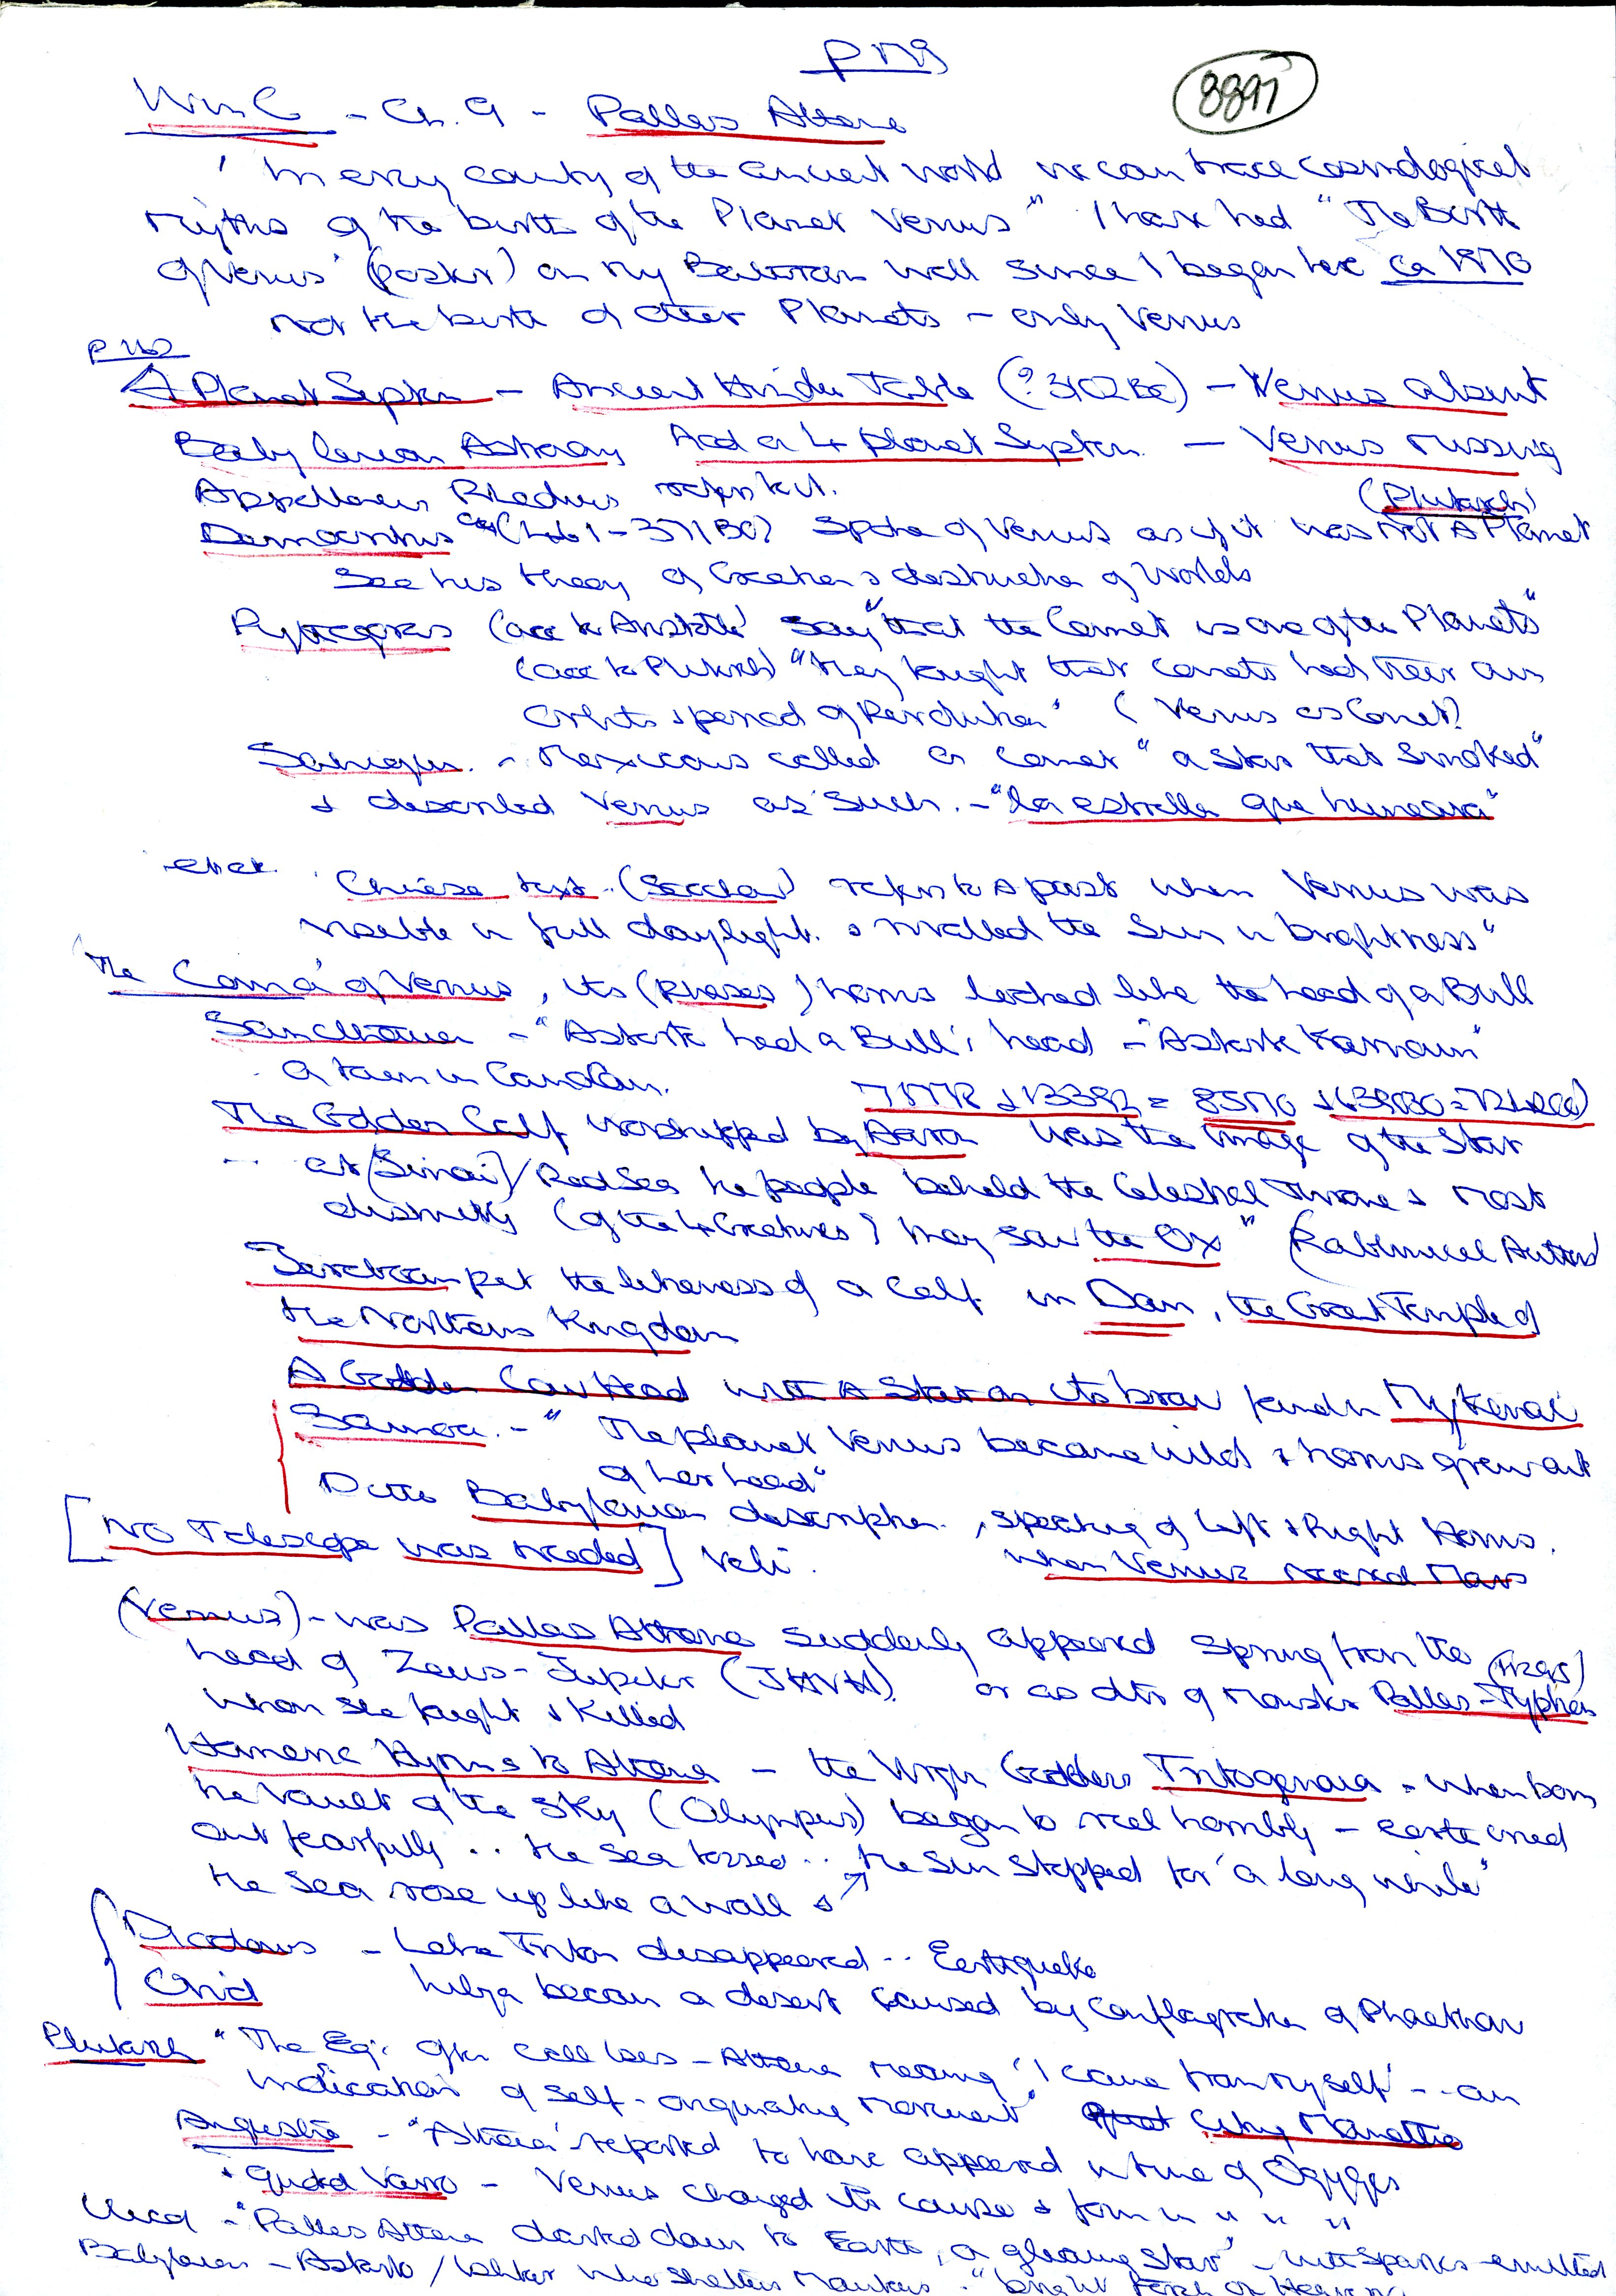 8897
WinC - Ch. 9 - Pallas Athene
"In every country of the ancient world we can trace cosmological
myths of the birth of the Planet Venus" I have had "The Birth
of Venus" (poster) on my Bathroom wall since I began here ca 1970
not the birth of other Planets - only Venus
4 Planet System - Ancient Hindu Table (? 3102 BC) - Venus absent
Babylonian Astronomy Had a 4 planet System - Venus missing
Apollonius Rhodius refers to it.
(Plutarch)
Democritus (460 - 371 BC) Spoke of Venus as if it was not a Planet
See his theory of Creation & destruction of Worlds
Pythagoras (acc to Aristotle) say "that the Comet is one of the Planets"
(acc to Plutarch) "they taught that comets had their own
orbits & period of Revolution" (Venus as Comet?)
Sahagun - Mexicans called a comet "a star that smoked"
& described Venus as such. - "la estrella que humeava"
Chinese text (Soochow) refers to a past when Venus was
visible in full daylight & rivalled the Sun in brightness"
The 'Coma' of Venus, its (Phases) horns looked like the head of a Bull
Sanchoniathon - "Astarte had a Bull's head - "Astarte Karnaim"
a town in Canaan.
The Golden Calf worshipped by Aaron was the image of the Star
at [Sinai] / Red Sea the people beheld the Celestial Throne & most
distinctly (of the 4 Creatures) they saw the Ox" (Rabbinical Authors)
Jeroboam put the likeness of a Calf in Dan, the Great Temple of
the Northern Kingdom
A Golden Cow Head with A Star on its brow found in Mykenai
Samoa - "The planet Venus became wild & horns grew out
of her head"
Ditto Babylonian description, speaking of Left & Right Horns.
[No Telescope was needed] Veli.
when Venus neared Mars
(Venus) - was Pallas Athene suddenly appeared sprung from the
head of Zeus - Jupiter (JHVH). or as dtr of monster Pallas - Typhon
whom she fought & killed
Homeric Hymns to Athena - the Virgin Goddess Tritogeneia - when born
the vault of the sky (Olympus) began to reel horribly - earth cried
out fearfully .. the sea tossed .. the Sun stopped for "a long while"
the sea rose up like a wall &
Diodorus - Lake Triton disappeared .. Earthquake
Ovid Libya became a desert caused by conflagration of Phaethon
Plutarch "The Eg's often call Isis - Athene meaning 'I came from myself' - - an
indication of self-originating movement"
Augustine - "Athena" reported to have appeared in time of Ogyges
quoted Varro - Venus changed its course & form in " " "
Iliad - "Pallas Athene darted down to Earth, a gleaming star" - with sparks emitted
Babylonian - Astarte / Ishtar who shatters Mountains - "bright torch of Heaven"